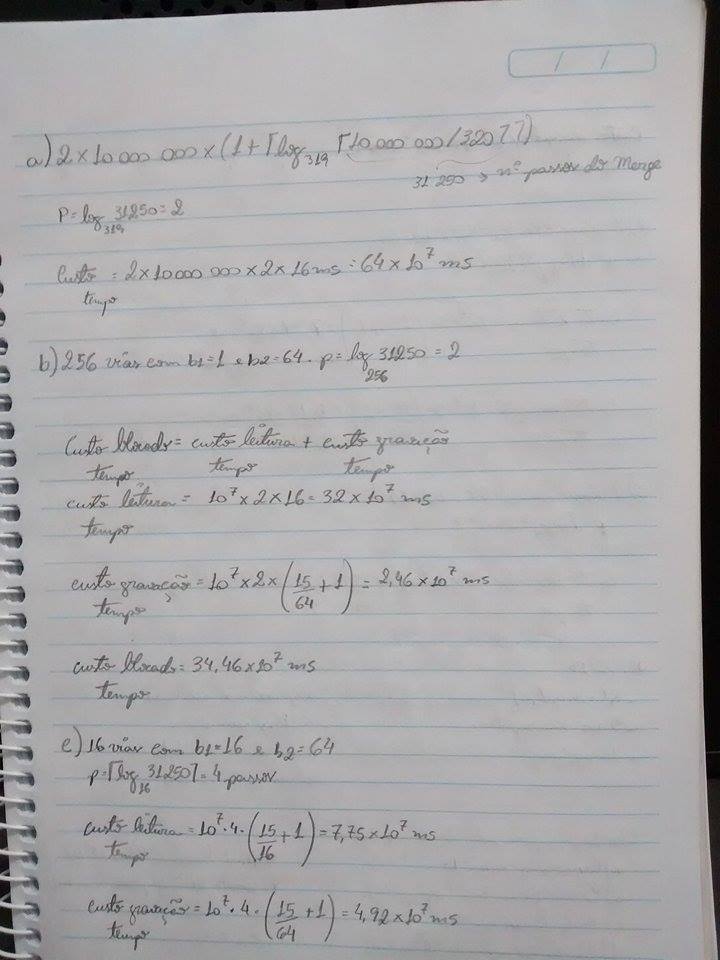 / /
a) 2 × 10 000 000 × (1 + ⌈log₃₁₉ ⌈10 000 000 / 320⌉⌉)
31 250 → nº passos do Merge
P = log₃₁₉ 31250 = 2
Custo tempo = 2 × 10 000 000 × 2 × 16 ms = 64 × 10⁷ ms
b) 256 vias com b1 = 1 e b2 = 64. p = log₂₅₆ 31250 = 2
Custo blocado tempo = custo leitura tempo + custo gravação tempo
custo leitura tempo = 10⁷ × 2 × 16 = 32 × 10⁷ ms
custo gravação tempo = 10⁷ × 2 × (15/64 + 1) = 2,46 × 10⁷ ms
custo blocado tempo = 34,46 × 10⁷ ms
c) 16 vias com b1 = 16 e b2 = 64
p = ⌈log₁₆ 31250⌉ = 4 passos
custo leitura tempo = 10⁷ · 4 · (15/16 + 1) = 7,75 × 10⁷ ms
custo gravação tempo = 10⁷ · 4 · (15/64 + 1) = 4,92 × 10⁷ ms